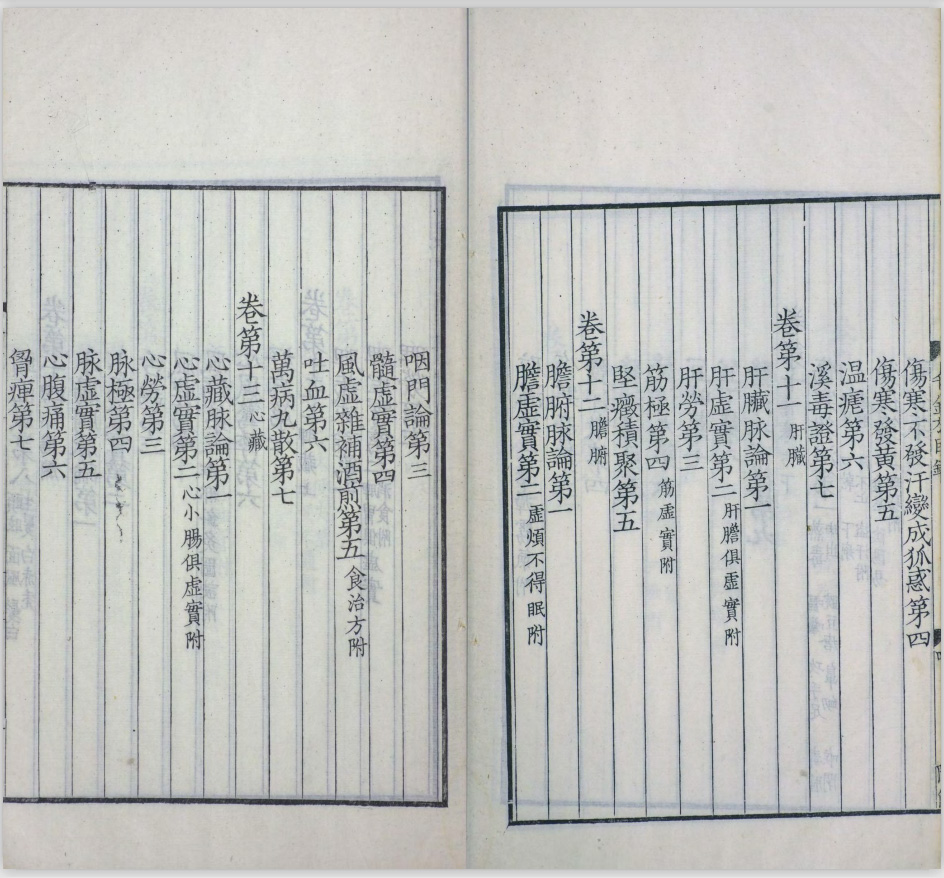 傷寒不發汗變成狐惑第四
傷寒發黄第五
温瘧第六
溪毒證第七
卷第十一 肝臟
肝臟脉論第一
肝虛實第二 肝膽俱虛實附
肝勞第三
筋極第四 筋虛實附
堅癥積聚第五
卷第十二 膽腑
膽腑脉論第一
膽虛實第二 虛煩不得眠附
咽門論第三
髓虛實第四
風虛雜補酒煎第五 食治方附
吐血第六
萬病丸散第七
卷第十三 心藏
心藏脉論第一
心虛實第二 心小腸俱虛實附
心勞第三
脉極第四
脉虛實第五
心腹痛第六
胷痺第七